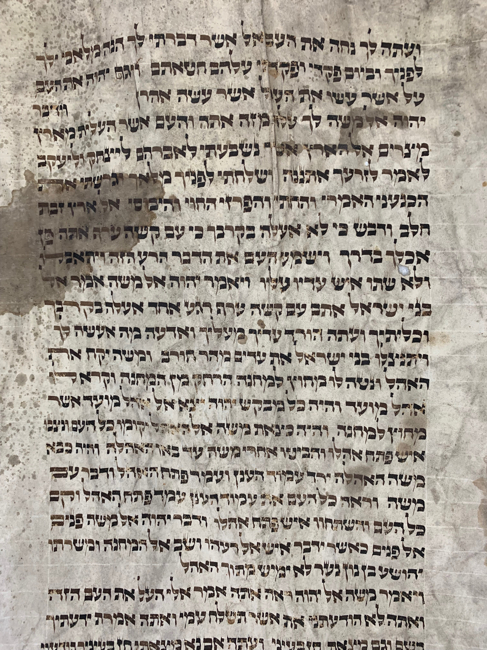 ועתה לך נחה את העם אל אשר דברתי לך הנה מלאכי ילך
לפניך וביום פקדי ופקדתי עלהם חטאתם ויגף יהוה את העם
על אשר עשו את העגל אשר עשה אהרן
וידבר
יהוה אל משה לך עלה מזה אתה והעם אשר העלית מארץ
מצרים אל הארץ אשר נשבעתי לאברהם ליצחק וליעקב
לאמר לזרעך אתננה ושלחתי לפניך מלאך וגרשתי את
הכנעני האמרי והחתי והפרזי החוי והיבוסי אל ארץ זבת
חלב ודבש כי לא אעלה בקרבך כי עם קשה ערף אתה פן
אכלך בדרך וישמע העם את הדבר הרע הזה ויתאבלו
ולא שתו איש עדיו עליו ויאמר יהוה אל משה אמר אל
בני ישראל אתם עם קשה ערף רגע אחד אעלה בקרבך
וכליתיך ועתה הורד עדיך מעליך ואדעה מה אעשה לך
ויתנצלו בני ישראל את עדים מהר חורב ומשה יקח את
האהל ונטה לו מחוץ למחנה הרחק מן המחנה וקרא לו
אהל מועד והיה כל מבקש יהוה יצא אל אהל מועד אשר
מחוץ למחנה והיה כצאת משה אל האהל יקומו כל העם ונצבו
איש פתח אהלו והביטו אחרי משה עד באו האהלה והיה כבא
משה האהלה ירד עמוד הענן ועמד פתח האהל ודבר עם
משה וראה כל העם את עמוד הענן עמד פתח האהל וקם
כל העם והשתחוו איש פתח אהלו ודבר יהוה אל משה פנים
אל פנים כאשר ידבר איש אל רעהו ושב אל המחנה ומשרתו
יהושע בן נון נער לא ימיש מתוך האהל
ויאמר משה אל יהוה ראה אתה אמר אלי העל את העם הזה
ואתה לא הודעתני את אשר תשלח עמי ואתה אמרת ידעתיך
בשם וגם מצאת חן בעיני ועתה אם נא מצאתי חן בעיניך